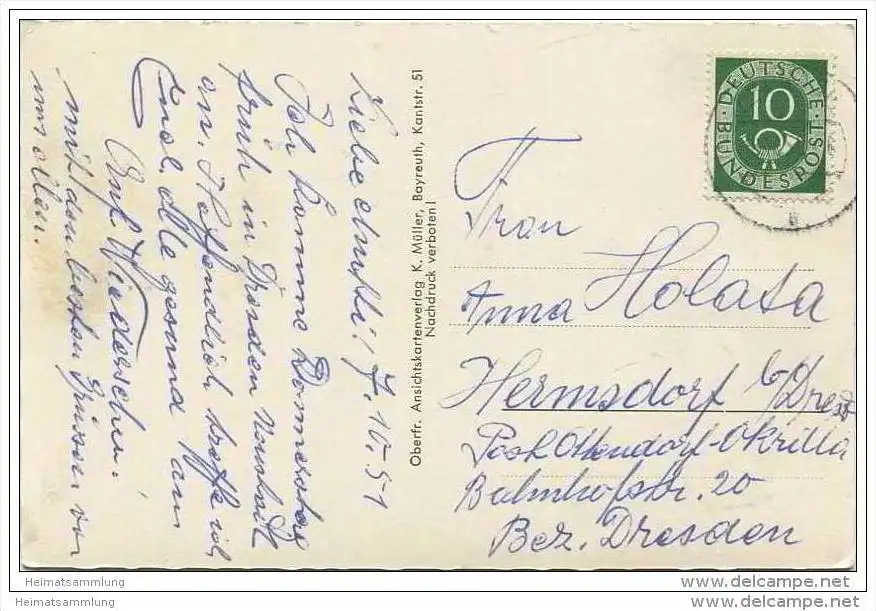 Liebe Mutti! 7.10.51
Ich komme Donnerstag
früh in Dresden Neustadt
an. Hoffendlich treffe ich
Euch Alle gesund an
Auf Wiedersehen.
mit den besten Grüssen von
uns allen.
Oberfr. Ansichtskartenverlag K. Müller, Bayreuth, Kantstr. 51
Nachdruck verboten!
DEUTSCHE BUNDESPOST
10
Frau
Anna Holata
Hermsdorf b/Dresd
Post Ottendorf-Okrilla
Bahnhofstr. 20
Bez. Dresden
Heimatsammlung
Heimatsammlung
www.delcampe.net
www.delcampe.net